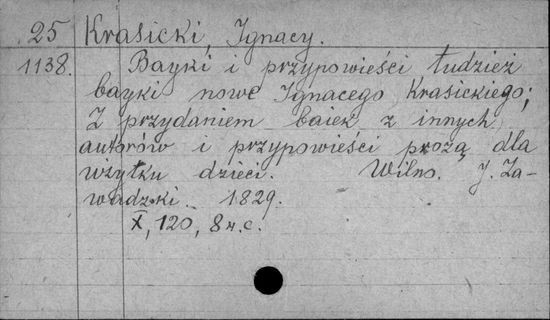 25 Krasicki, Ignacy.
1138. Bayki i przypowieści tudzież
bayki nowe Ignacego Krasickiego;
Z przydaniem baiek z innych
autorów i przypowieści prozą dla
użytku dzieci. Wilno. J. Za-
wadzki. 1829.
X, 120, 8 н.с.